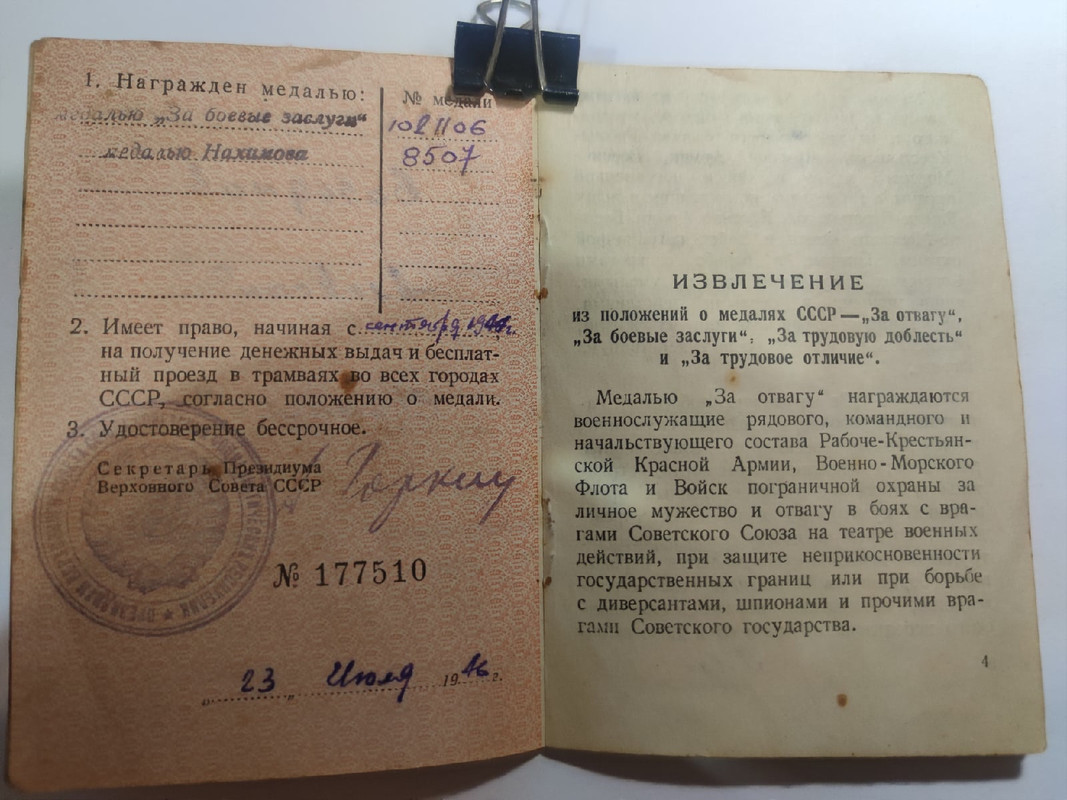 1. Награжден медалью:
№ медали
медалью „За боевые заслуги“
1021106
медалью Нахимова
8507
2. Имеет право, начиная с сентября 1944г.
на получение денежных выдач и бесплат-
ный проезд в трамваях во всех городах
СССР, согласно положению о медали.
3. Удостоверение бессрочное.
Секретарь Президиума
Верховного Совета СССР
Горкин
№ 177510
„ 23 „ Июля 1946 г.
ИЗВЛЕЧЕНИЕ
из положений о медалях СССР—„За отвагу“,
„За боевые заслуги“, „За трудовую доблесть“
и „За трудовое отличие“.
Медалью „За отвагу“ награждаются
военнослужащие рядового, командного и
начальствующего состава Рабоче-Крестьян-
ской Красной Армии, Военно-Морского
Флота и Войск пограничной охраны за
личное мужество и отвагу в боях с вра-
гами Советского Союза на театре военных
действий, при защите неприкосновенности
государственных границ или при борьбе
с диверсантами, шпионами и прочими вра-
гами Советского государства.
4